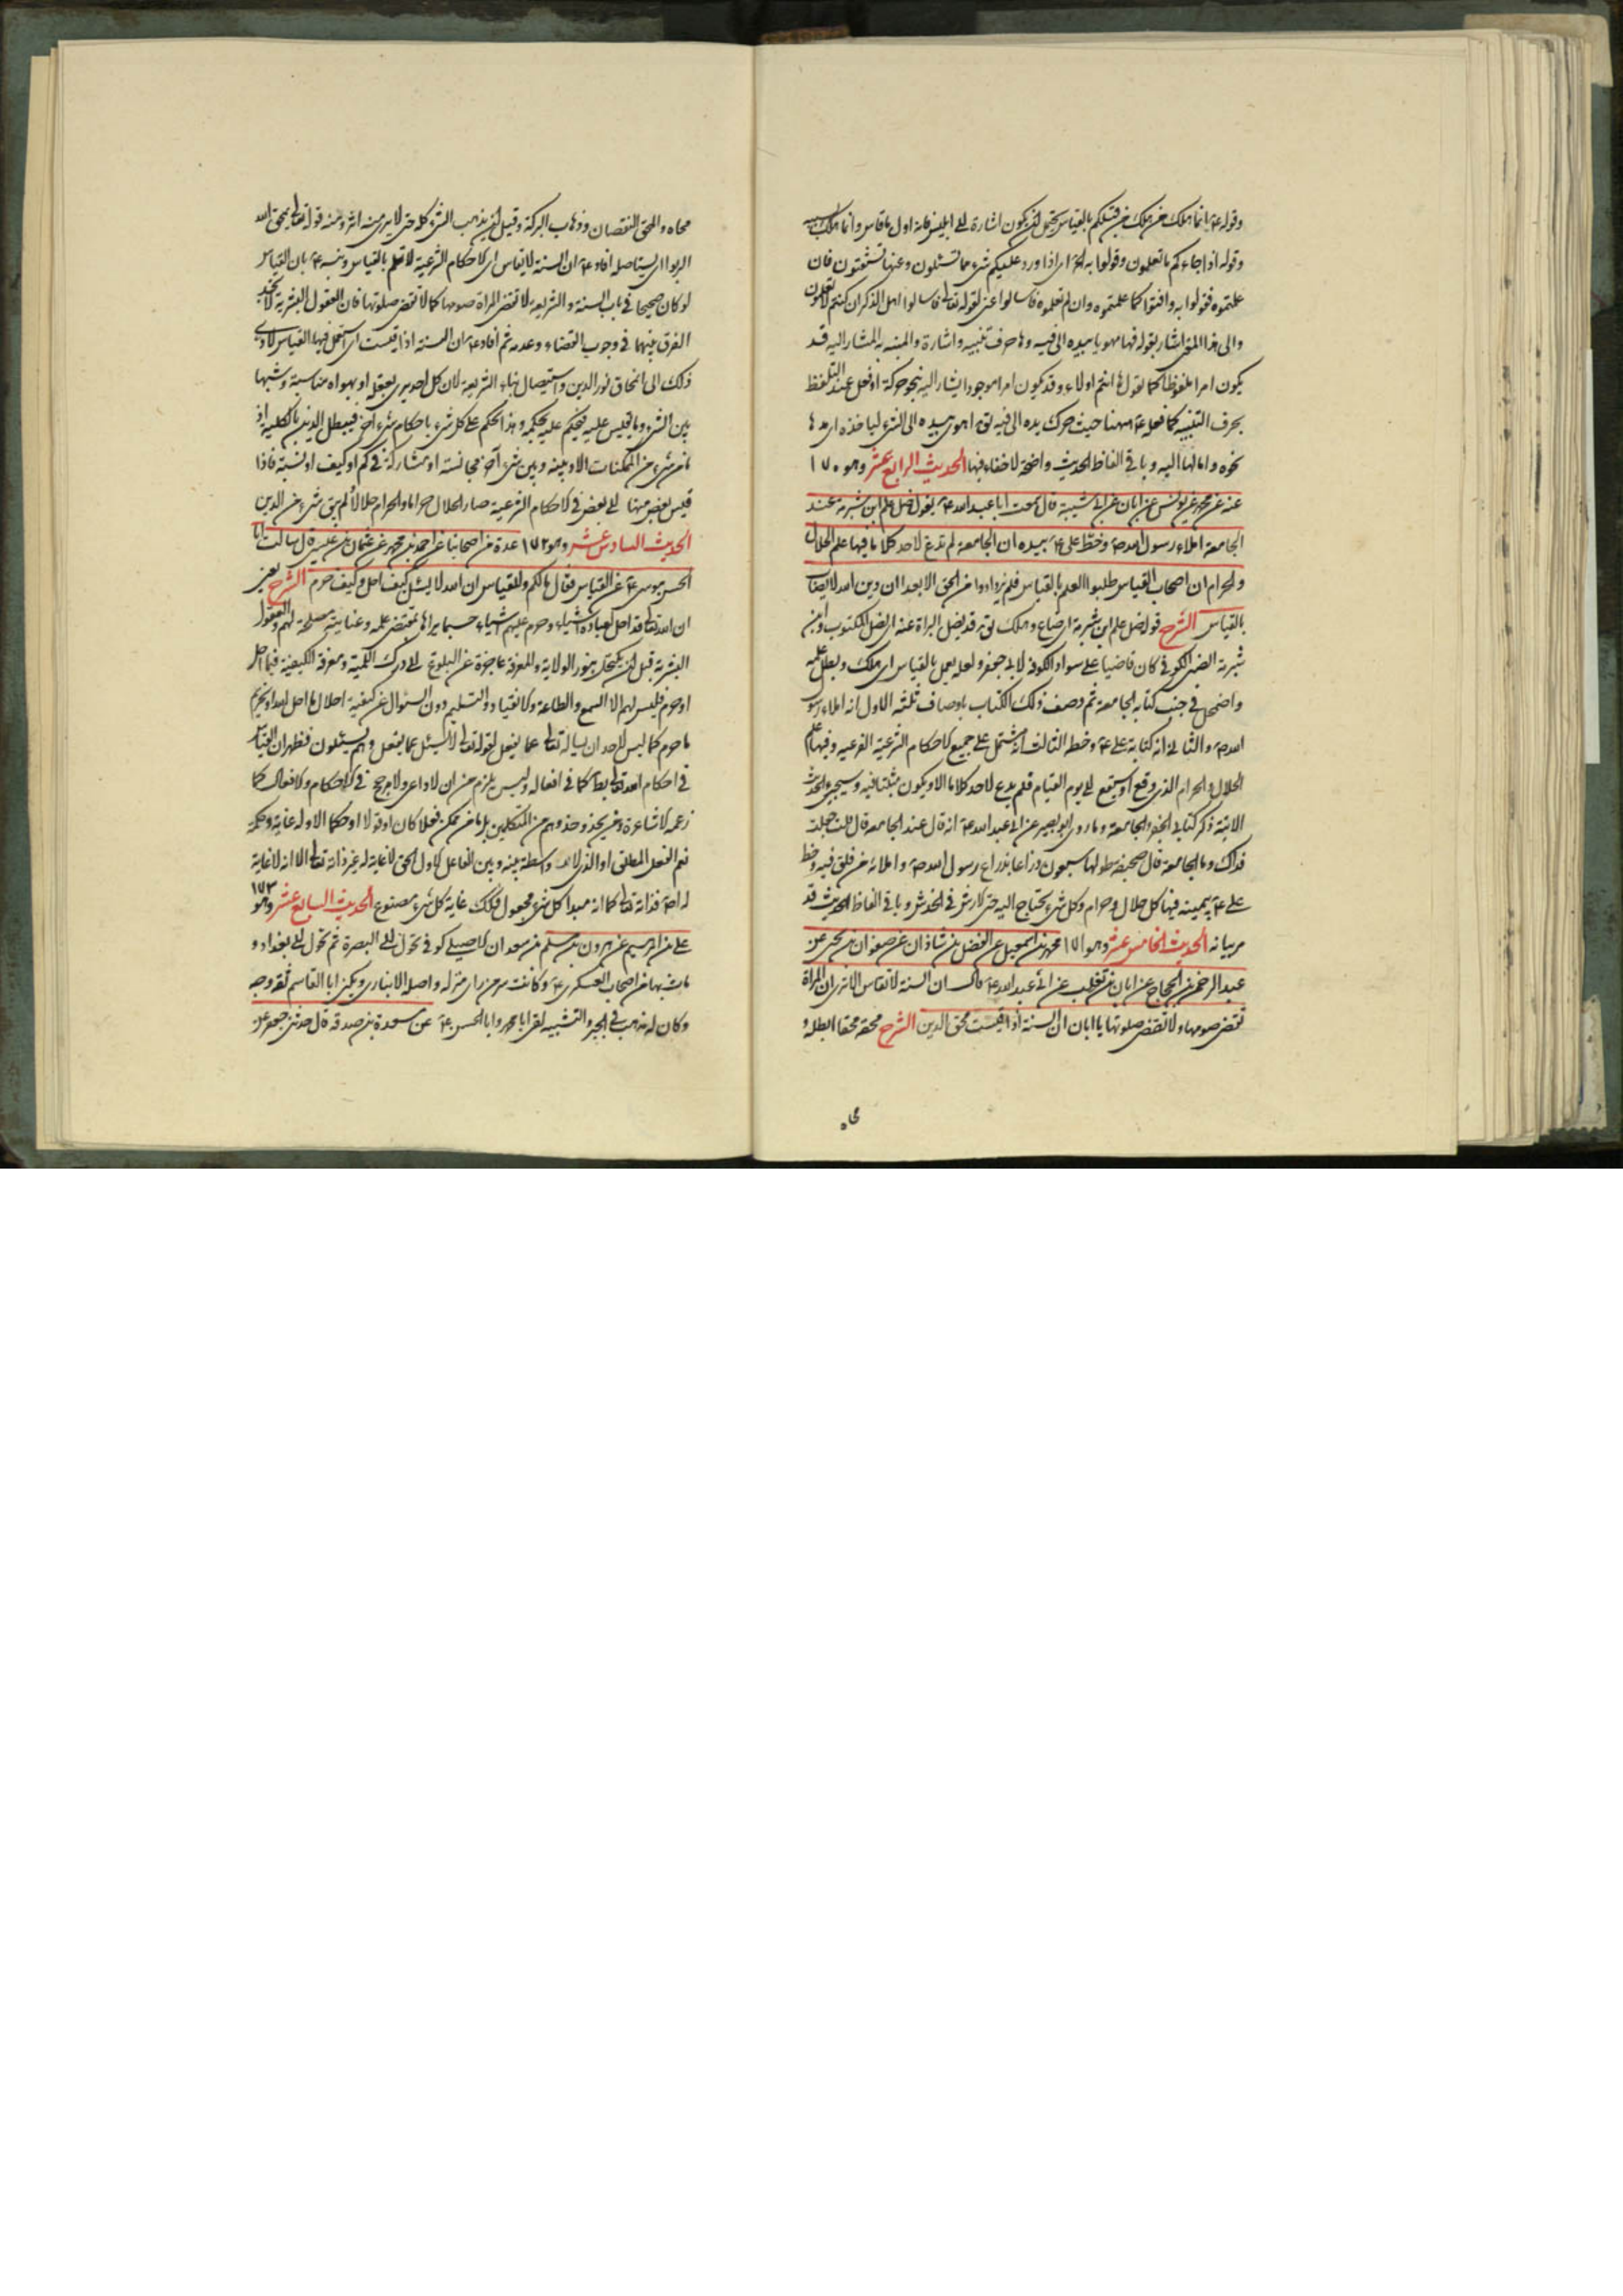 وقوله ع انما هلك من هلك من قبلكم بالقياس يحتمل ان يكون اشارة الى ابليس فانه اول من قاس وانما هلك
وقوله اذا جاءكم ما تعلمون وقولوا به اى اذا ورد عليكم شىء مما تسئلون وعنها تستفتون فان
علمتموه فقولوا به وافتوا كما علمتموه وان لم تعلموه فاسالوا عنى لقوله تعالى فاسالوا اهل الذكر ان كنتم لا تعلمون
والى هذا المعنى اشار بقوله فها هو بيده الى فيه وها حرف تنبيه واشارة والمنبه به المشار اليه قد
يكون امرا ملفوظا كما تقول ها انتم اولاء وقد يكون امرا موجودا يشار اليه بنحو حركة او فعل عند التلفظ
بحرف التنبيه كما فعله ع ههنا حيث حرك يده الى فيه اهوى بيده الى الشىء لياخذه اى مدها
نحوه وامالها اليه وباقى الفاظ الحديث واضحة لا خفاء فيها الحديث الرابع عشر وهو ١٧٠
عنه عن محمد عن يونس عن ابان عن ابى شيبة قال سمعت ابا عبد الله ع يقول ضل علم ابن شبرمة عند
الجامعة املاء رسول الله ص وخط على ع بيده ان الجامعة لم تدع لاحد كلاما فيها علم الحلال
والحرام ان اصحاب القياس طلبوا العلم بالقياس فلم يزدادوا من الحق الا بعدا ان دين الله لا يصاب
بالقياس الشرح قوله ضل علم ابن شبرمة اى ضاع وهلك قد يضل البراة عنه اى ضل المكتوب وابن
شبرمة الضبى الكوفى كان قاضيا على سواد الكوفة لابى جعفر ولعله يعمل بالقياس اى هلك وبطل علمه
واضمحل فى جنب كتابه الجامعة ثم وصف ذلك الكتاب باوصاف ثلثة الاول انه املاء رسول
الله ص والثانى انه كتابة على ع وخطه الثالث انه مشتمل على جميع الاحكام الشرعية الفرعية وفيها علم
الحلال والحرام الذى وقع او سيقع الى يوم القيام فلم يدع لاحد كلاما الا ويكون مثبتا فيه وسيجىء
الاتية ذكر كتابى الجفر والجامعة وما روى ابو بصير عن ابى عبد الله ع انه قال عند الجامعة قال قلت جعلت
فداك وما الجامعة قال صحيفة طولها سبعون ذراعا بذراع رسول الله ص واملائه من فلق فيه وخط
على ع بيمينه فيها كل حلال وحرام وكل شىء يحتاج اليه حتى الارش فى الخدش وباقى الفاظ الحديث قد
مر بيانه الحديث الخامس عشر وهو ١٧١ محمد بن اسمعيل عن الفضل بن شاذان عن صفوان بن يحيى عن
عبد الرحمن بن الحجاج عن ابان بن تغلب عن ابى عبد الله ع قال ان السنة لا تقاس الا ترى ان المراة
تقضى صومها ولا تقضى صلوتها يا ابان ان السنة اذا قيست محق الدين الشرح محقه محقا ابطله و
محاه
محاه والمحق النقصان وذهاب البركة وقيل ان يذهب الشىء كله حتى لا يرى منه اثر ومنه قوله تعالى يمحق الله
الربوا اى يستاصله افاد ع ان السنة لا تقاس اى الاحكام الشرعية لا تعلم بالقياس ونبه ع بان القياس
لو كان صحيحا فى باب السنة والشريعة لا تقضى المراة صومها كما لا تقضى صلوتها فان العقول البشرية لا تجد
الفرق بينهما فى وجوب القضاء وعدمه ثم افاد ع ان السنة اذا قيست اى استعمل فيها القياس لادى
ذلك الى انمحاق نور الدين واستيصال بناء الشريعة لان كل احد يرى بعقله او بهواه مناسبة وشبها
بين الشىء وما يقيس عليه فيحكم عليه بحكمه وهذا الحكم على كل شىء باحكام شىء آخر فيبطل الدين بالكلية اذ
ما من شىء من الممكنات الا وبينه وبين شىء آخر مجانسة او مشاركة فى كم او كيف او نسبة فاذا
قيس بعض منها على بعض فى الاحكام الشرعية صار الحلال حراما والحرام حلالا فلم يبق شىء من الدين
الحديث السادس عشر وهو ١٧٢ عدة من اصحابنا عن احمد بن محمد عن عثمان بن عيسى قال سالت ابا
الحسن موسى ع عن القياس فقال مالكم وللقياس ان الله لا يسئل كيف احل وكيف حرم الشرح يعنى
ان الله تعالى قد احل لعباده اشياء وحرم عليهم اشياء حسبما يراها بمقتضى علمه وعنايته مصلحة لهم والعقول
البشرية قبل ان يكتحل بنور الولاية والمعرفة عاجزة عن البلوغ الى درك اللمية ومعرفة الكيفية فيما احل
او حرم فليس لهم الا السمع والطاعة والانقياد والتسليم دون السؤال عن كيفية احلال ما احل الله او تحريم
ما حرم كما ليس لاحد ان يساله تعالى عما يفعل لقوله تعالى لا يسئل عما يفعل وهم يسئلون فظهر ان القياس
فى احكام الله تعالى باطل كما فى افعاله وليس يلزم من ان لا داعى ولا مرجح فى الاحكام والافعال كما
زعمه الاشاعرة ومن يحذو حذوهم من المتكلمين بل ما من ممكن فعلا كان او قولا او حكما الا وله غاية وحكمة
نعم الفعل المطلق او الذى لا واسطة بينه وبين الفاعل الاول الحق لا غاية له غير ذاته تعالى الا انه لا غاية
له اصلا فذاته تعالى كما انه مبدا كل شىء مجعول فكذلك غاية كل شىء مصنوع الحديث السابع عشر وهو ١٧٣
على بن ابراهيم عن هرون بن مسلم بن سعدان الاصل كوفى تحول الى البصرة ثم تحول الى بغداد و
مات بها من اصحاب العسكرى ع وكانت سر من راى منزله واصله الانبارى ويكنى ابا القاسم ثقة وجه
وكان له مذهب فى الجبر والتشبيه لقى ابا محمد وابا الحسن ع عن مسعدة بن صدقة قال حدثنى جعفر عن